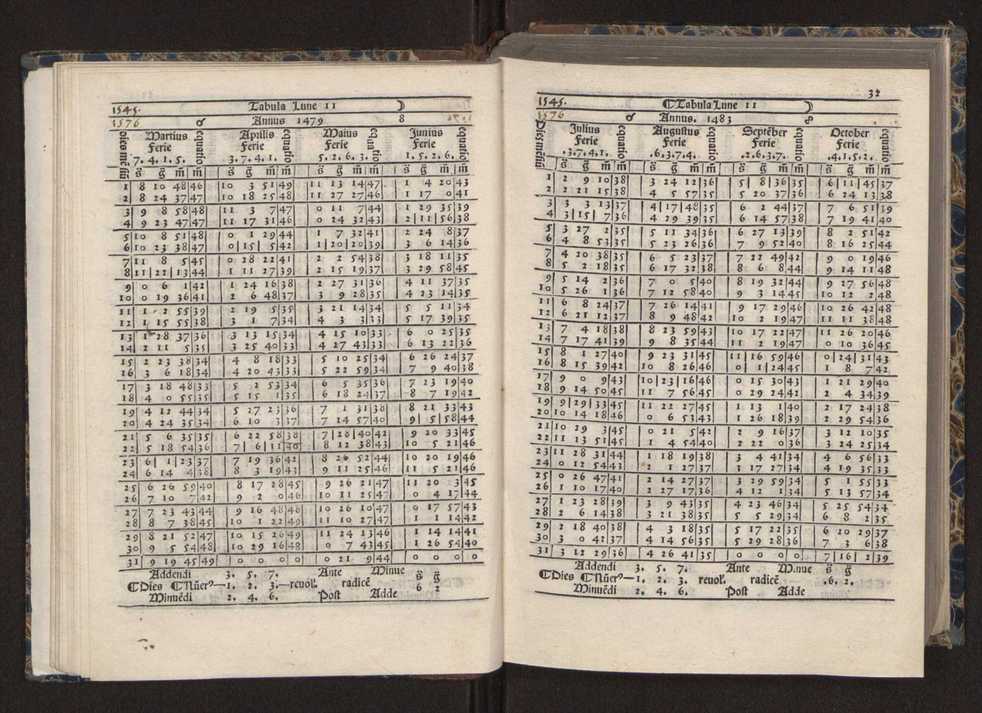 1545. Tabula Lune 11 ☽
1576 ♂ Annus 1479 8
Martius Aprilis Maius Junius
Ferie Ferie Ferie Ferie
7. 4. 1. 5. 3. 7. 4. 1. 5. 2. 6. 3. 1. 5. 2. 6.
s g m m s g m m s g m m s g m m
1 8 10 48 46 10 3 51 49 11 13 14 47 1 4 20 43
2 8 24 37 47 10 18 25 48 11 27 27 46 1 17 0 41
3 9 8 58 48 11 3 7 47 0 11 7 44 1 29 35 39
4 9 23 47 47 11 17 31 46 0 24 32 43 2 11 56 38
5 10 8 51 48 0 1 29 44 1 7 32 41 2 24 8 37
6 10 23 38 47 0 15 5 42 1 20 20 39 3 6 14 36
7 11 8 5 45 0 28 22 41 2 2 54 38 3 18 11 35
8 11 22 13 44 1 11 27 39 2 15 19 37 3 29 58 45
9 0 6 1 42 1 24 16 38 2 27 31 36 4 11 37 35
10 0 19 36 41 2 6 48 37 3 9 28 35 4 23 14 35
11 1 2 55 39 2 19 5 35 3 21 14 34 5 5 11 34
12 1 15 55 38 3 1 7 34 4 3 3 33 5 17 39 35
13 1 28 37 36 3 13 15 34 4 15 10 33 6 0 25 35
14 2 11 5 35 3 25 40 33 4 27 43 33 6 13 22 36
15 2 23 38 34 4 8 18 33 5 10 25 34 6 26 24 37
16 3 6 18 34 4 20 43 33 5 22 59 34 7 9 40 38
17 3 18 48 33 5 2 53 34 6 5 35 36 7 23 19 40
18 4 0 55 35 5 15 1 35 6 18 24 37 8 7 19 42
19 4 12 44 34 5 27 23 36 7 1 31 38 8 21 33 43
20 4 24 35 34 6 10 3 37 7 14 57 40 9 5 58 44
21 5 6 35 35 6 22 58 38 7 28 40 42 9 20 33 45
22 5 18 54 36 7 6 11 40 8 12 38 43 10 5 21 46
23 6 1 23 37 7 19 36 42 8 26 52 44 10 20 19 46
24 6 14 4 38 8 3 19 43 9 11 25 46 11 5 21 46
25 6 26 59 40 8 17 28 45 9 26 21 47 11 20 3 45
26 7 10 7 42 9 2 0 46 10 11 25 47 0 4 17 44
27 7 23 43 44 9 16 48 48 10 26 10 47 0 17 57 43
28 8 7 38 45 10 1 22 49 11 10 27 47 1 1 14 42
29 8 21 52 47 10 15 26 49 11 24 13 46 1 14 14 41
30 9 5 54 48 10 29 16 48 0 7 43 45 1 26 54 40
31 9 19 45 49 0 0 0 0 0 21 9 44 0 0 0 0
Addendi 3. 5. 7. Ante Minue s g
Dies Nũer⁹—1. 2. 3.—reuol'. radicẽ 6 2
Minuẽdi 2. 4. 6. Post Adde
32
1545. Tabula Lune 11 ☽
1576 ♂ Annus. 1483
Julius Augustus Septẽber October
Ferie Ferie Ferie Ferie
.3.7.4.1. .6.3.7.4. .2.6.3.7. .4.1.5.2.
s g m m s g m m s g m m s g m m
1 2 9 10 38 3 24 12 36 5 8 36 35 6 11 45 37
2 2 21 15 38 4 5 57 35 5 20 37 36 6 24 13 38
3 3 3 13 37 4 17 48 35 6 2 44 37 7 6 51 39
4 3 15 7 36 4 29 39 35 6 14 57 38 7 19 41 40
5 3 27 2 35 5 11 34 36 6 27 13 39 8 2 51 42
6 4 8 53 35 5 23 26 36 7 9 52 40 8 16 25 44
7 4 20 38 35 6 5 23 37 7 22 49 42 9 0 19 46
8 5 2 18 35 6 17 32 38 8 6 8 44 9 14 11 48
9 5 14 2 36 7 0 5 40 8 19 32 44 9 27 56 48
10 5 26 1 36 7 12 58 40 9 3 14 45 10 12 2 48
11 6 8 24 37 7 26 14 41 9 17 29 46 10 26 42 48
12 6 21 12 37 8 9 48 42 10 2 19 47 11 11 38 48
13 7 4 18 38 8 23 59 43 10 17 22 47 11 26 20 46
14 7 17 41 39 9 8 35 44 11 2 19 47 0 10 36 45
15 8 1 27 40 9 23 31 45 11 16 59 46 0 24 31 43
16 8 15 39 42 10 8 26 46 0 1 24 45 1 8 7 42
17 9 0 9 43 10 23 16 46 0 15 30 43 1 21 29 40
18 9 14 50 45 11 7 56 45 0 29 24 42 2 4 34 39
19 9 29 33 45 11 22 27 45 1 13 1 40 2 17 24 38
20 10 14 18 46 0 6 51 43 1 26 18 39 2 29 54 36
21 10 29 3 45 0 21 5 42 2 9 16 37 3 12 10 35
22 11 13 51 45 1 4 54 40 2 22 0 36 3 24 25 34
23 11 28 31 44 1 18 19 38 3 4 41 34 4 6 56 33
24 0 12 54 43 2 1 27 37 3 17 27 34 4 19 35 33
25 0 26 47 41 2 14 27 37 3 29 59 34 5 1 55 33
26 1 10 17 40 2 27 17 36 4 12 1 34 5 13 57 34
27 1 23 28 39 3 9 43 35 4 23 46 34 5 25 54 34
28 2 6 14 38 3 21 38 35 5 5 29 34 6 8 2 35
29 2 18 40 38 4 3 18 35 5 17 22 35 6 20 29 37
30 3 0 41 37 4 14 56 35 5 29 28 36 7 3 6 38
31 3 12 29 36 4 26 41 35 0 0 0 0 7 16 2 39
Addendi 3. 5. 7. Ante Minue s g
Dies Nũer⁹—1. 2. 3. reuol'. radicẽ .6. 2.
Minuẽdi 2. 4. 6. Post Adde